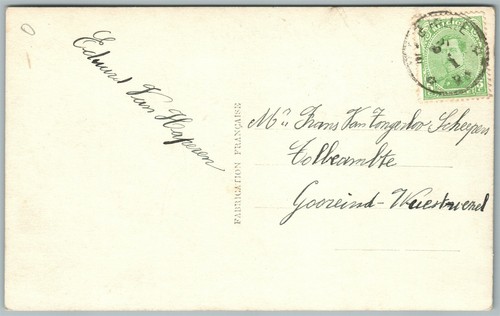 Eduard Van Haperen
FABRICATION FRANÇAISE
Mr Frans Van Tongerloo-Schepens
Tolbeambte
Gooreind-Wuestwezel